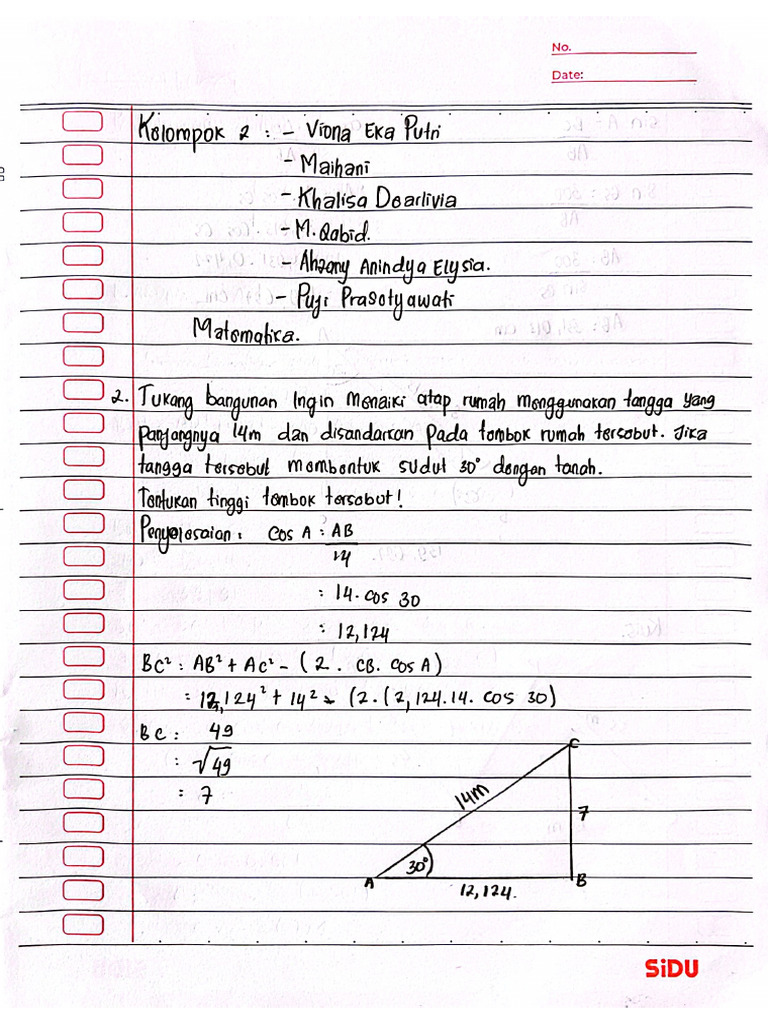 No.
Date:
Kelompok 2 : - Viona Eka Putri
- Maihani
- Khalisa Dearlivia
- M. Qabid.
- Ahzany Anindya Elysia.
- Puji Prasetyawati
Matematika.
2. Tukang bangunan Ingin Menaiki atap rumah menggunakan tangga yang
panjangnya 14m dan disandarkan pada tembok rumah tersebut. Jika
tangga tersebut membentuk sudut 30° dengan tanah.
Tentukan tinggi tembok tersebut!
Penyelesaian : cos A : AB
14
: 14. cos 30
: 12,124
BC² : AB² + AC² - ( 2 . CB. cos A)
: 12,124² + 14² - (2. (2,124.14. cos 30)
BC : 49
: √49
: 7
C
14m
7
30°
A
B
12,124.
SiDU